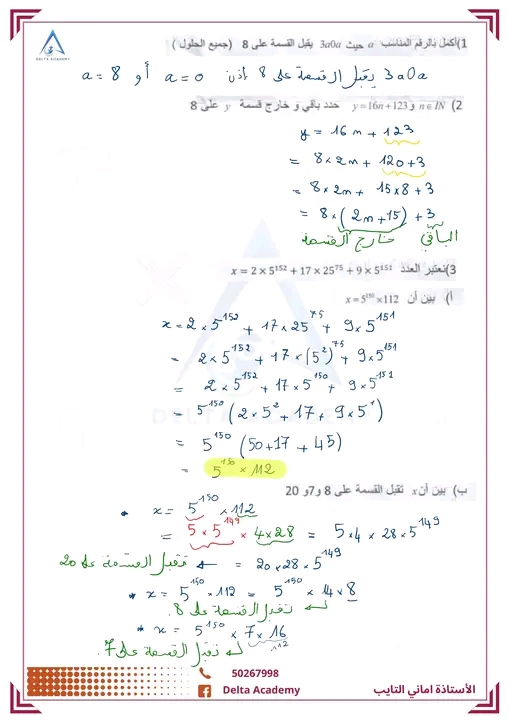 DELTA ACADEMY
1)أكمل بالرقم المناسب a حيث 3a0a يقبل القسمة على 8 (جميع الحلول)
3a0a يقبل القسمة على 8 اذن a = 0 أو a = 8
2) n∈IN و y=16n+123 حدد باقي و خارج قسمة y على 8
y = 16n + 123
= 8×2n + 120+3
= 8×2n + 15×8 + 3
= 8×(2n+15) + 3
خارج القسمة الباقي
3)نعتبر العدد x = 2×5¹⁵² +17×25⁷⁵ +9×5¹⁵¹
أ) بين أن x=5¹⁵⁰×112
x = 2×5¹⁵² + 17×25⁷⁵ + 9×5¹⁵¹
= 2×5¹⁵² + 17×(5²)⁷⁵ + 9×5¹⁵¹
= 2×5¹⁵² + 17×5¹⁵⁰ + 9×5¹⁵¹
= 5¹⁵⁰(2×5² + 17 + 9×5¹)
= 5¹⁵⁰(50+17+45)
= 5¹⁵⁰ × 112
ب) بين أن x تقبل القسمة على 8 و7و 20
* x = 5¹⁵⁰ × 112
= 5×5¹⁴⁹ × 4×28 = 5×4×28×5¹⁴⁹
= 20×28×5¹⁴⁹ ← تقبل القسمة على 20
* x = 5¹⁵⁰×112 = 5¹⁵⁰×14×8
تقبل القسمة على 8.
* x = 5¹⁵⁰ × 7×16
112
تقبل القسمة على 7.
50267998
Delta Academy
الأستاذة اماني التايب